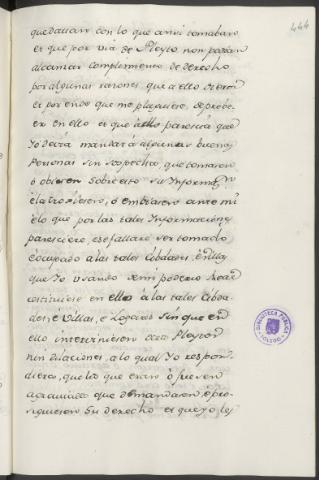 444
quedauan con lo que ansi tomaban
et que por via de Pleyto non podian
alcanzar complimiento de derecho
por algunas razones, que a ello dieron
et por ende que me pluguiere, de probe-
er en ello et que à ellos parescia que
Yo devia mandar à algunas buenas
Personas sin sospecha, que tomasen
ò obiesen sobre esto su Informaⁿ
è la troxiesen, ò embiasen ante mi
è lo que por las tales Informaciones
paresciere, è se fallare ser tomado
è ocupado à las tales Cibdades, è Villas
que Yo usando de mi poderio Real
restituiese en ello à las tales Cibda-
des, è Villas, è Logares sin que en
ello interviniesen otro Pleyto
nin dilaciones, a lo qual Yo respon-
diera, que los que eran ò fuesen
agraviados que demandasen, è pro-
siguiesen Su derecho et que yo les
BIBLIOTECA PUBLICA
TOLEDO